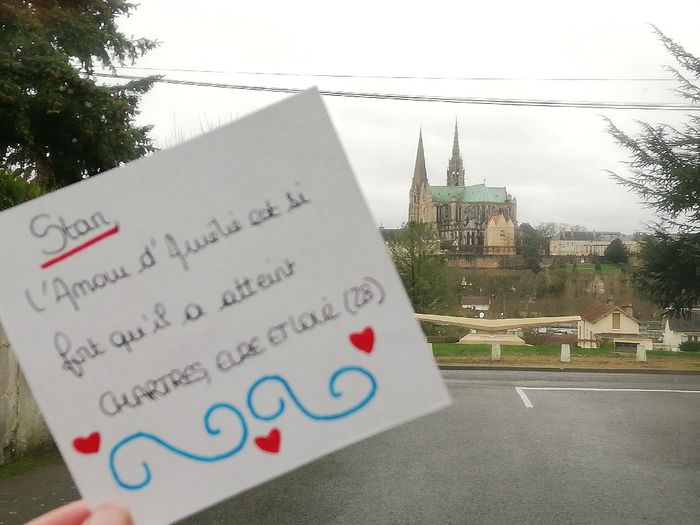 Stan,
L'Amour d'Amélie est si
fort qu'il a atteint
CHARTRES, EURE ET LOIR (28)